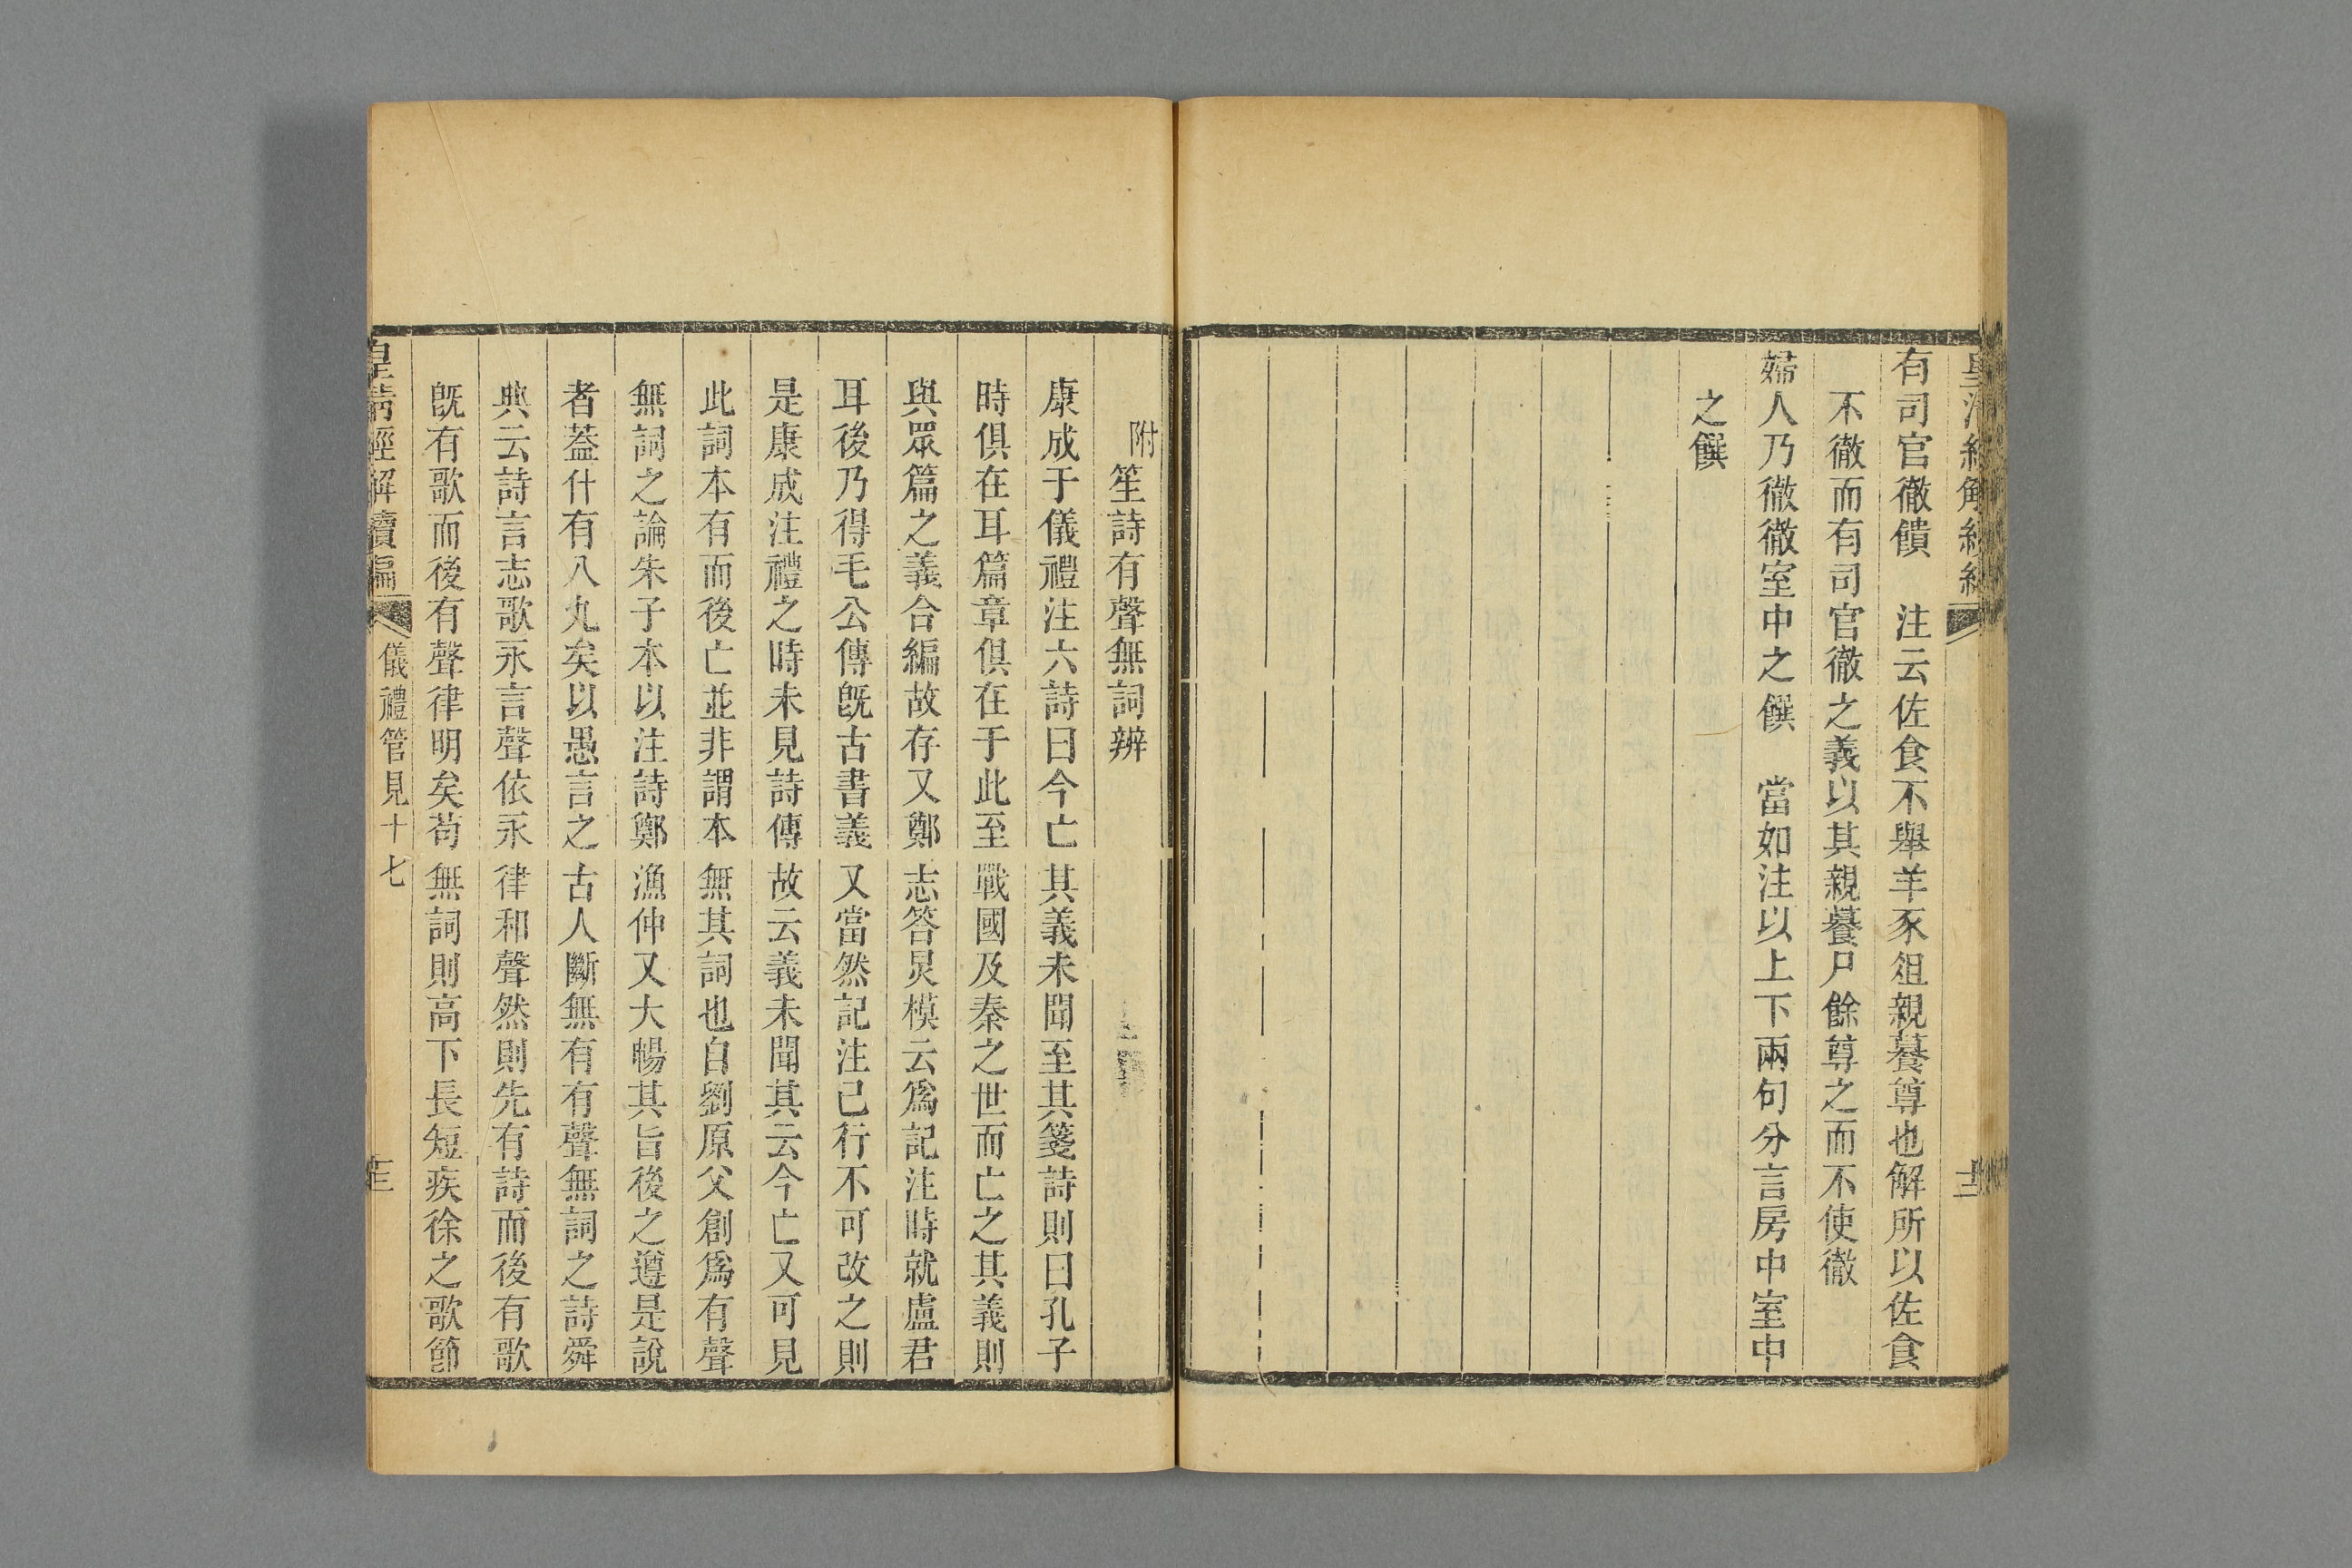 有司官徹饋　注云佐食不舉羊豕俎親餕尊也解所以佐食
不徹而有司官徹之義以其親餕尸餘尊之而不使徹
婦人乃徹徹室中之饌　當如注以上下兩句分言房中室中
之饌
附笙詩有聲無詞辨
康成于儀禮注六詩曰今亡其義未聞至其箋詩則曰孔子
時俱在耳篇章俱在于此至戰國及秦之世而亡之其義則
與眾篇之義合編故存又鄭志答炅模云爲記注時就盧君
耳後乃得毛公傳旣古書義又當然記注已行不可改之則
是康成注禮之時未見詩傳故云義未聞其云今亡又可見
此詞本有而後亡並非謂本無其詞也自劉原父創爲有聲
無詞之論朱子本以注詩鄭漁仲又大暢其旨後之遵是說
者蓋什有八九矣以愚言之古人斷無有有聲無詞之詩舜
典云詩言志歌永言聲依永律和聲然則先有詩而後有歌
旣有歌而後有聲律明矣苟無詞則高下長短疾徐之歌節
皇清經解續編
儀禮管見十七